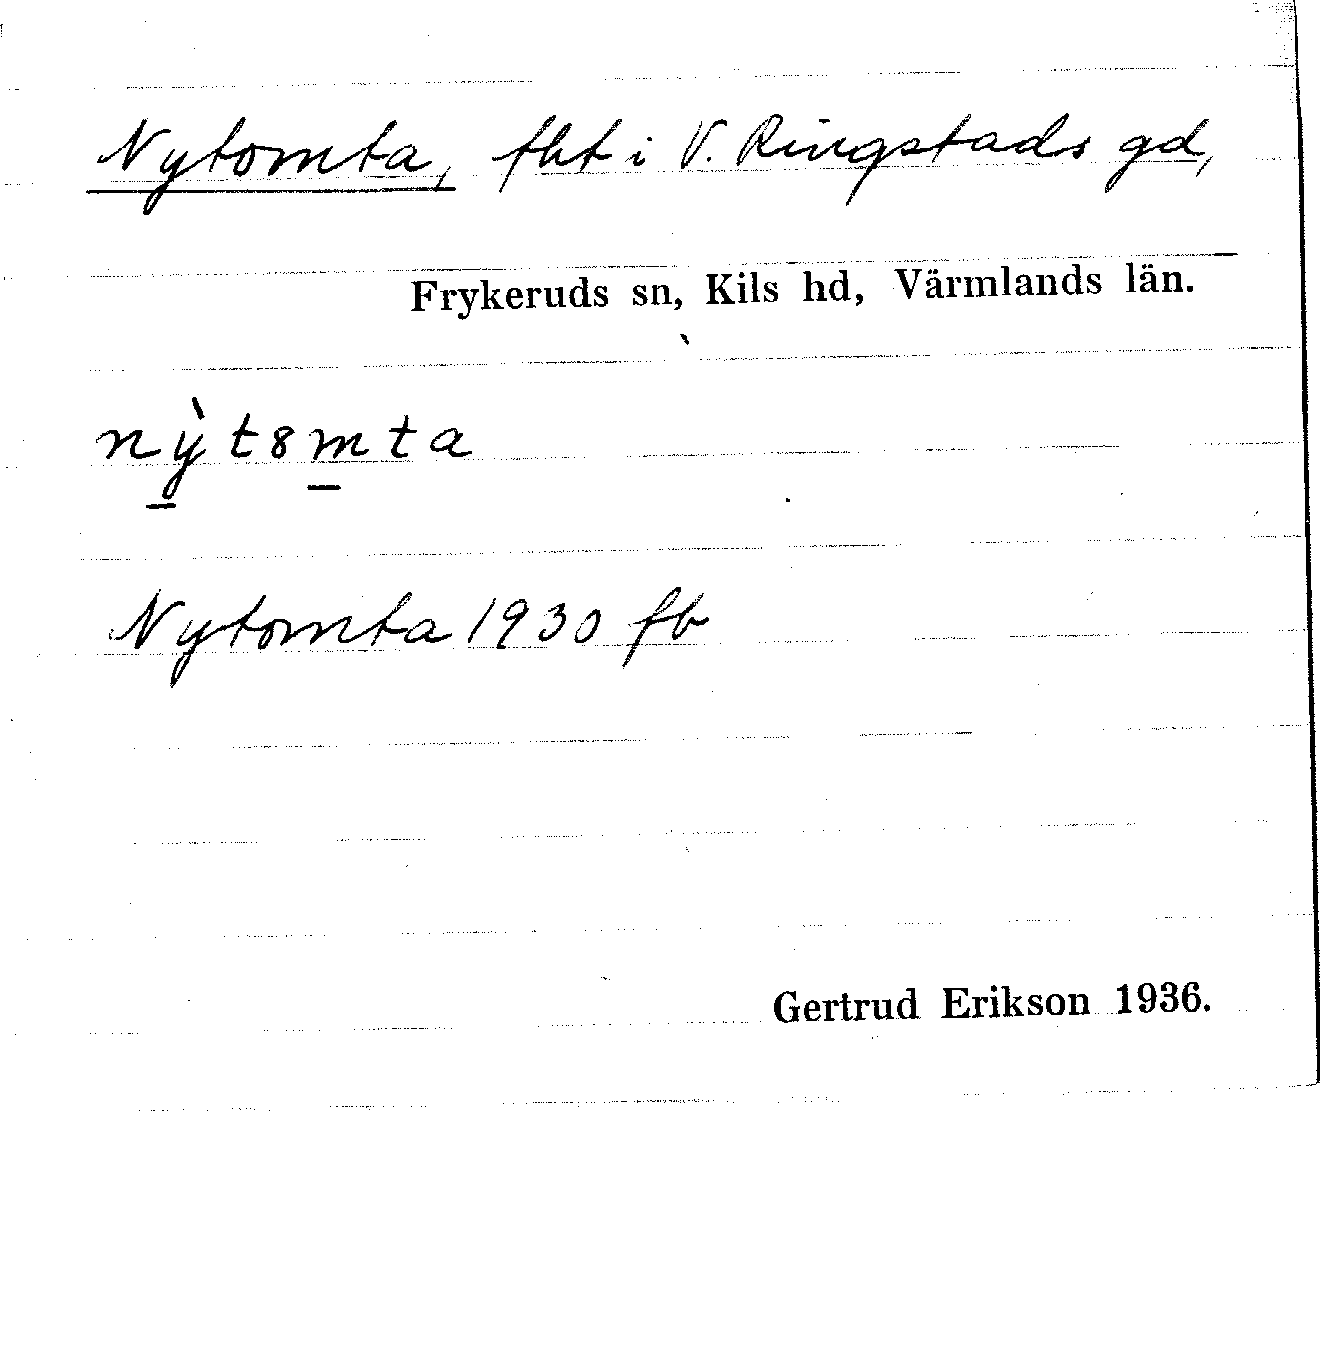 Nytomta, fht i V. Ringstads gd,
Frykeruds sn, Kils hd, Värmlands län.
nỳt8mta
Nytomta 1930 fb
Gertrud Erikson 1936.